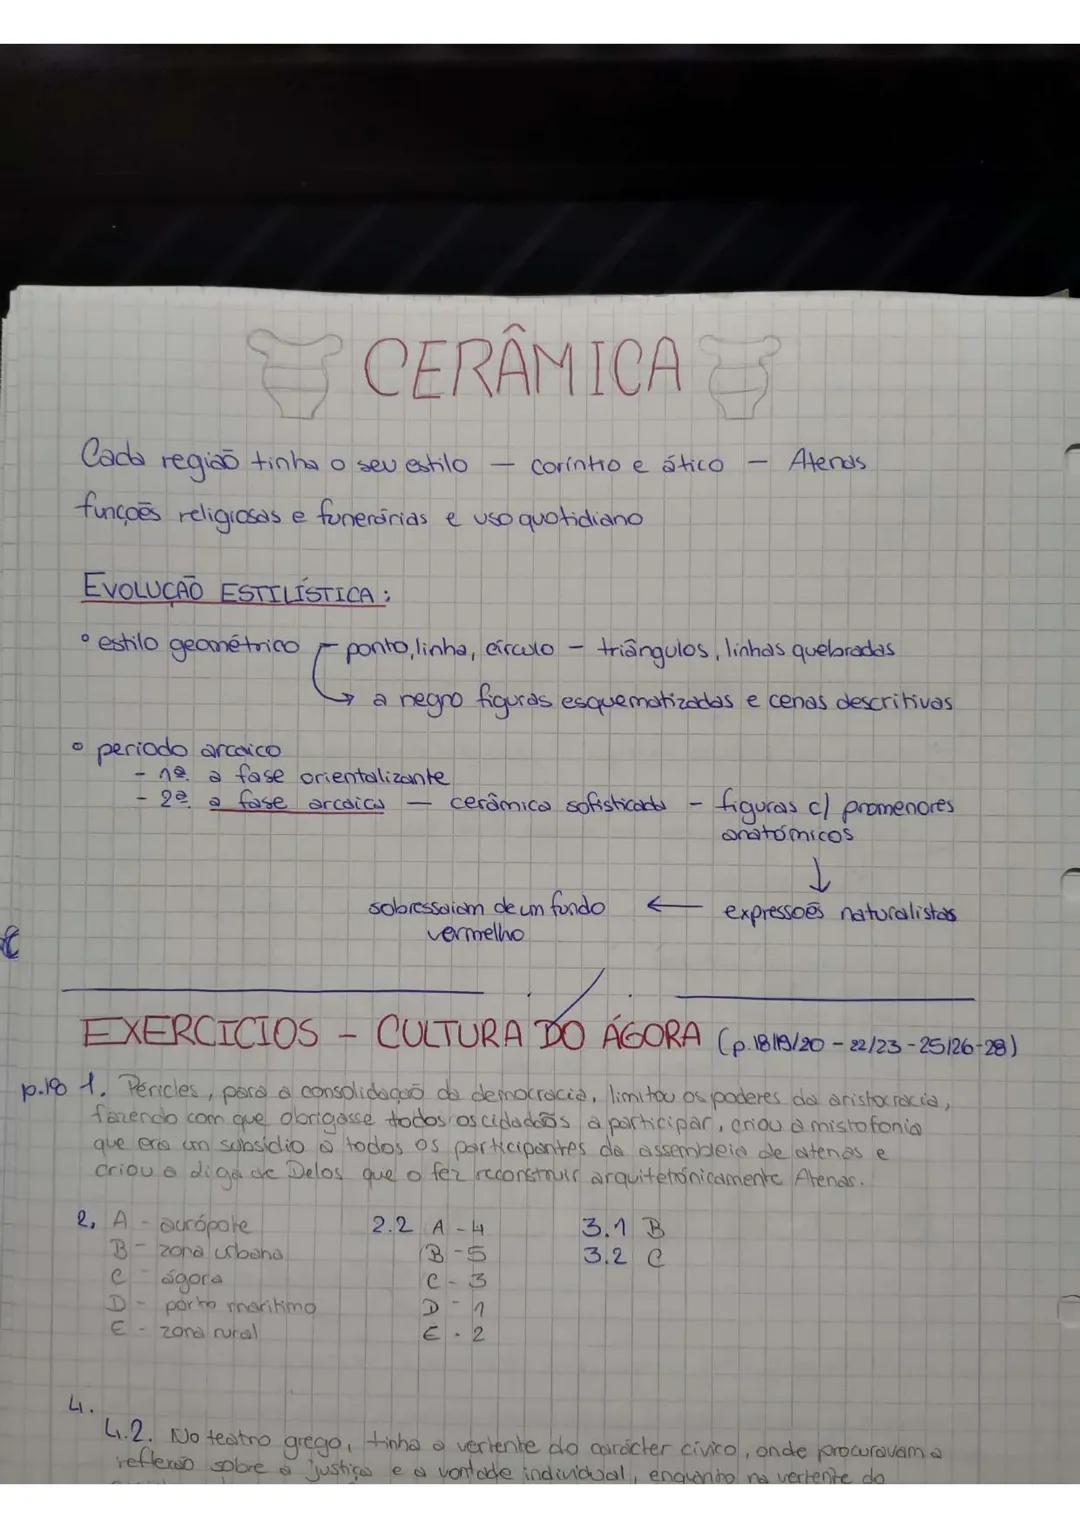 CERÂMICA
Cada região tinha o seu estilo — coríntio e ático — Atenas
funções religiosas e funerárias e uso quotidiano
EVOLUÇÃO ESTILÍSTICA:
° estilo geométrico — ponto, linha, círculo — triângulos, linhas quebradas
→ a negro figuras esquematizadas e cenas descritivas
° periodo arcaico
- 1ª a fase orientalizante
- 2ª a fase arcaica — cerâmica sofisticada — figuras c/ promenores
anatómicos
↓
sobressaiam de um fundo ← expressões naturalistas
vermelho
EXERCICIOS - CULTURA DO ÁGORA (p.18/19/20 - 22/23 - 25/26-28)
p.18 1. Péricles, para a consolidação da democracia, limitou os poderes da aristocracia,
fazendo com que obrigasse todos os cidadãos a participar, criou a mistofonia
que era um subsídio a todos os participantes da assembleia de atenas e
criou a diga de Delos que o fez reconstruir arquitetónicamente Atenas.
2. A - acrópole 2.2 A - 4 3.1 B
B - zona urbana B - 5 3.2 C
C - ágora C - 3
D - porto marítimo D - 1
E - zona rural E - 2
4.
4.2. No teatro grego, tinha a vertente do carácter cívico, onde procuravam a
reflexão sobre a justiça e a vontade individual, enquanto na vertente do